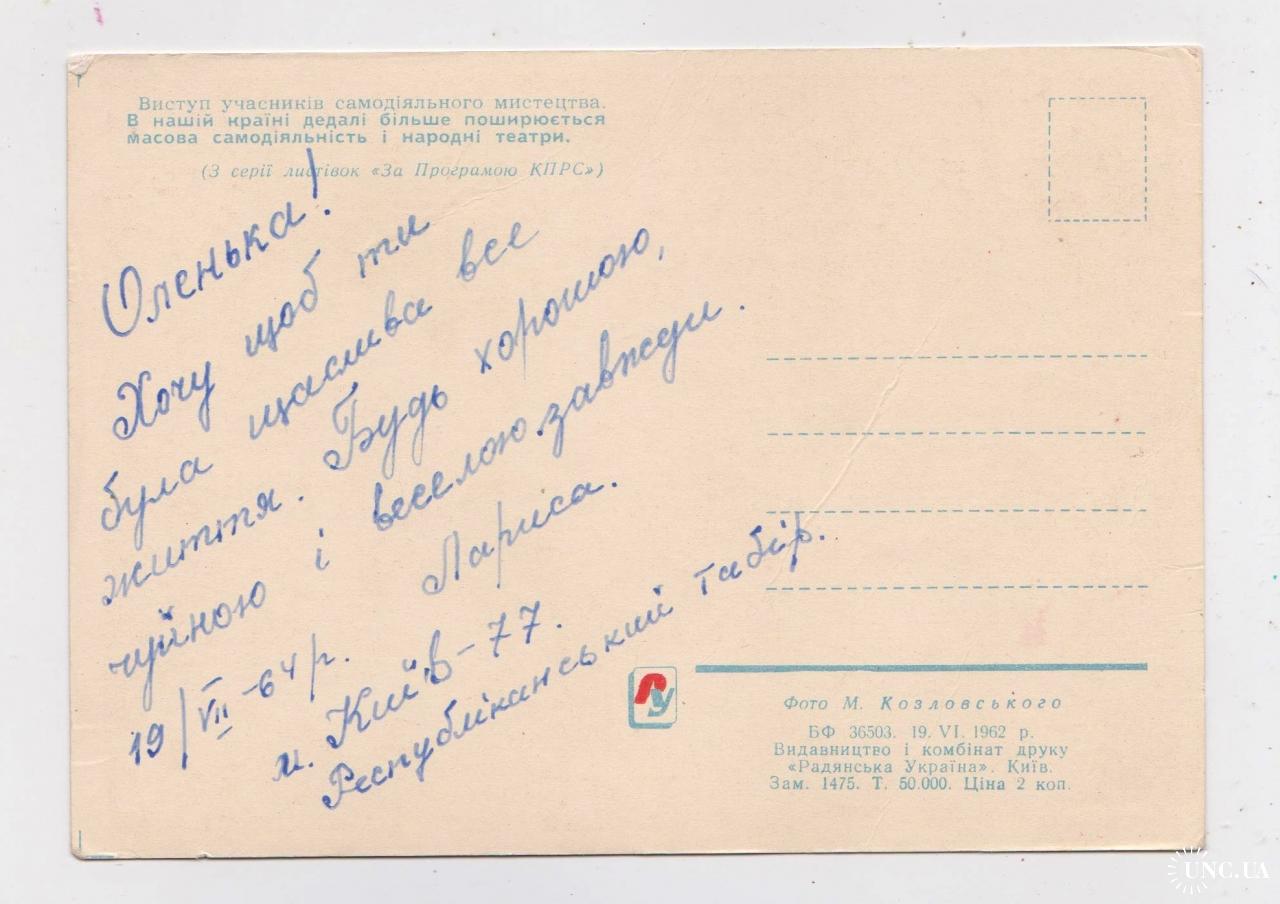 Виступ учасників самодіяльного мистецтва.
В нашій країні дедалі більше поширюється
масова самодіяльність і народні театри.
(З серії листівок «За Програмою КПРС»)
Оленька!
Хочу щоб ти
була щаслива все
життя. Будь хорошою,
чуйною і веселою завжди.
Лариса.
19/VII-64 р.
м. Київ-77.
Республіканський табір.
РУ
Фото М. Козловського
БФ 36503. 19. VI. 1962 р.
Видавництво і комбінат друку
«Радянська Україна». Київ.
Зам. 1475. Т. 50.000. Ціна 2 коп.
UNC.UA